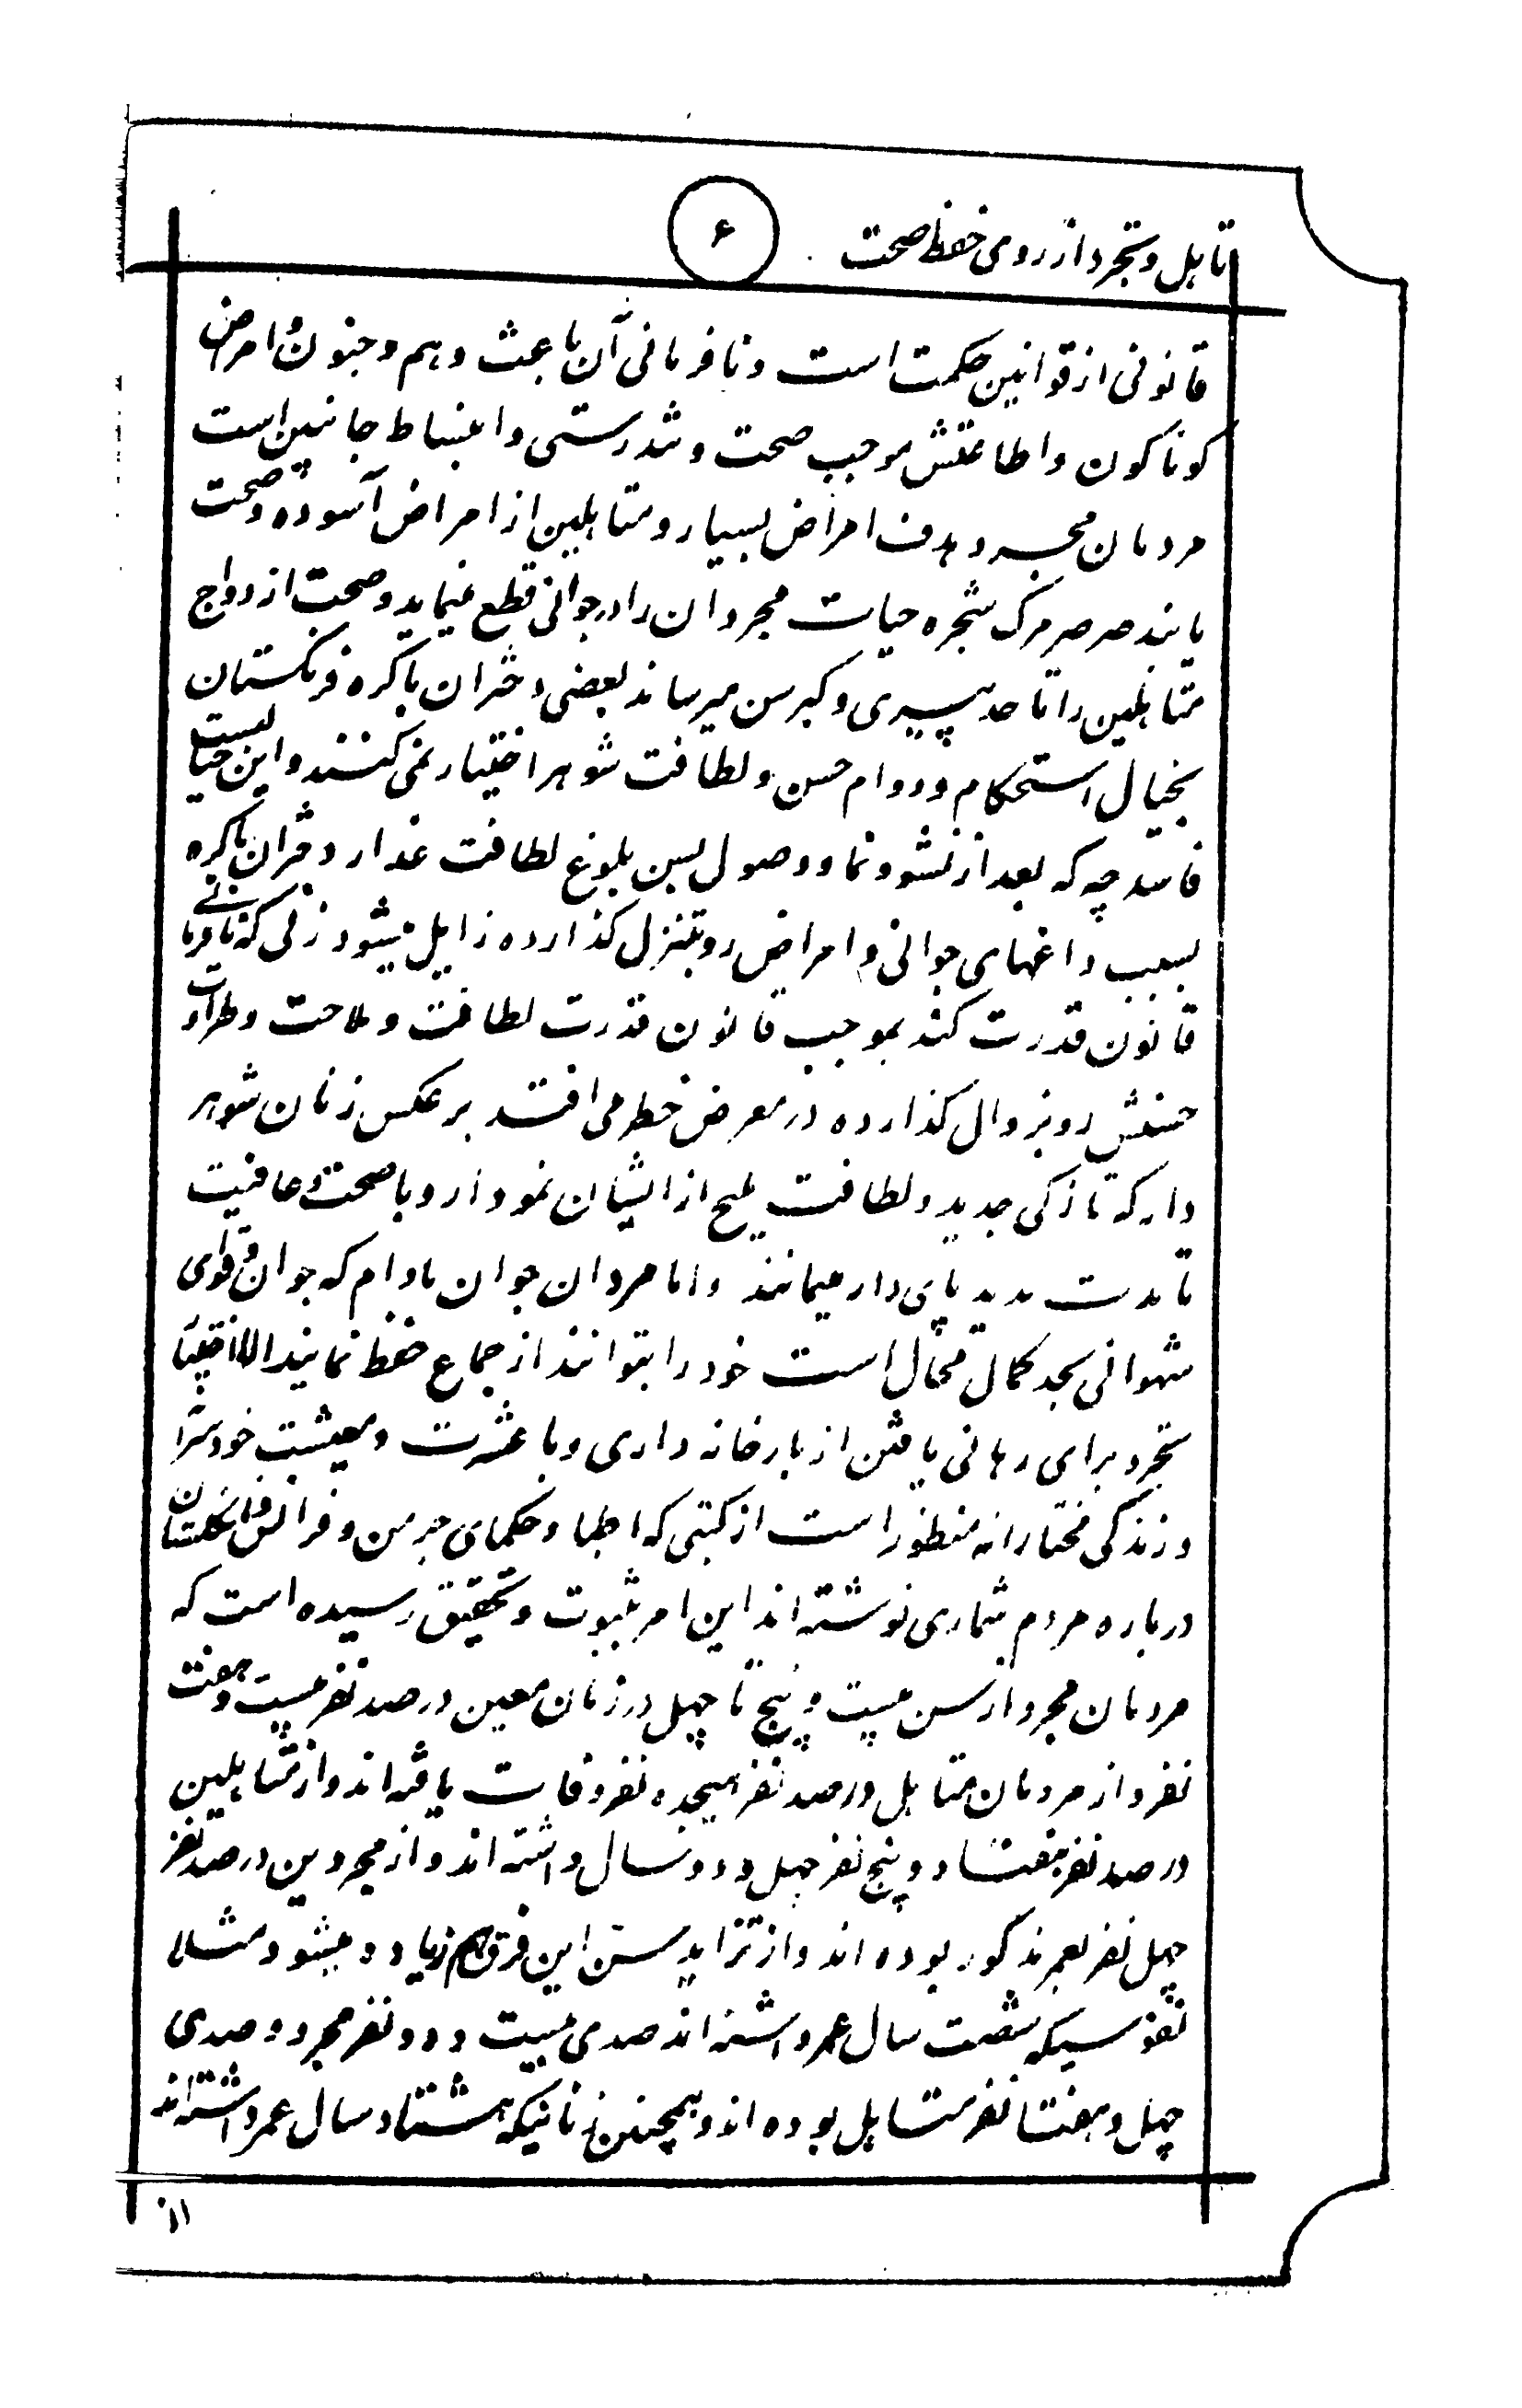 تاهل و تجرد از روی حفظ صحت
۶
قانونی از قوانین حکمت است و نافرمانی آن باعث وهم و جنون و امراض
کوناکون و اطاعتش موجب صحت و تندرستی و انبساط جانبین است
مردمان مجرد هدف امراض بسیار و متاهلین از امراض آسوده و صحت
یابند صرصر مرک شجره حیات مجردان را در جوانی قطع مینماید و صحبت ازدواج
متاهلین را تا حد پیری و کبر سن میرساند بعضی دختران باکره فرنکستان
بخیال استحکام و دوام حسن و لطافت شوهر اختیار نمی کنند و این خیالیست
فاسد چه که بعد از نشو و نما و وصول بسن بلوغ لطافت عذار دختران باکره
بسبب داغهای جوانی و امراض رو بتنزل کذارده زایل میشود زنی که نافرمانی
قانون قدرت کند بموجب قانون قدرت لطافت و ملاحت و طراوت
حسنش رو بزوال کذارده در معرض خطر می افتد بر عکس زنان شوهر
دار که تازکی جدید و لطافت ملیح از ایشان نمودار و با صحت و عافیت
تا مدت مدید پای دار میمانند و اما مردان جوان مادام که جوان و قوای
شهوانی بحد کمال محال است خود را بتوانند از جماع حفظ نمایند الا اختیار
تجرد برای رهائی یافتن از بار خانه داری و با عشرت و معیشت خودسرا
و زندکی مختارانه منظور است از کتبی که اطبا و حکمای جرمن و فرانس و انکلستان
درباره مردم شماری نوشته اند این امر بثبوت و تحقیق رسیده است که
مردمان مجرد از سن بیست و پنج تا چهل در زمان معین در صد نفر بیست و هفت
نفر و از مردمان متاهل در صد نفر هیجده نفر وفات یافته اند و از متاهلین
در صد نفر هفتاد و پنج نفر چهل و دو سال داشته اند و از مجردین در صد نفر
چهل نفر بعمر مذکور بوده اند و از تزاید سن این فرق هم زیاده میشود مثلا
نفوسیکه شصت سال عمر داشته اند صدی بیست و دو نفر مجرد و صدی
چهل و هفتا نفر متاهل بوده اند و همچنین زنانیکه هشتاد سال عمر داشته اند